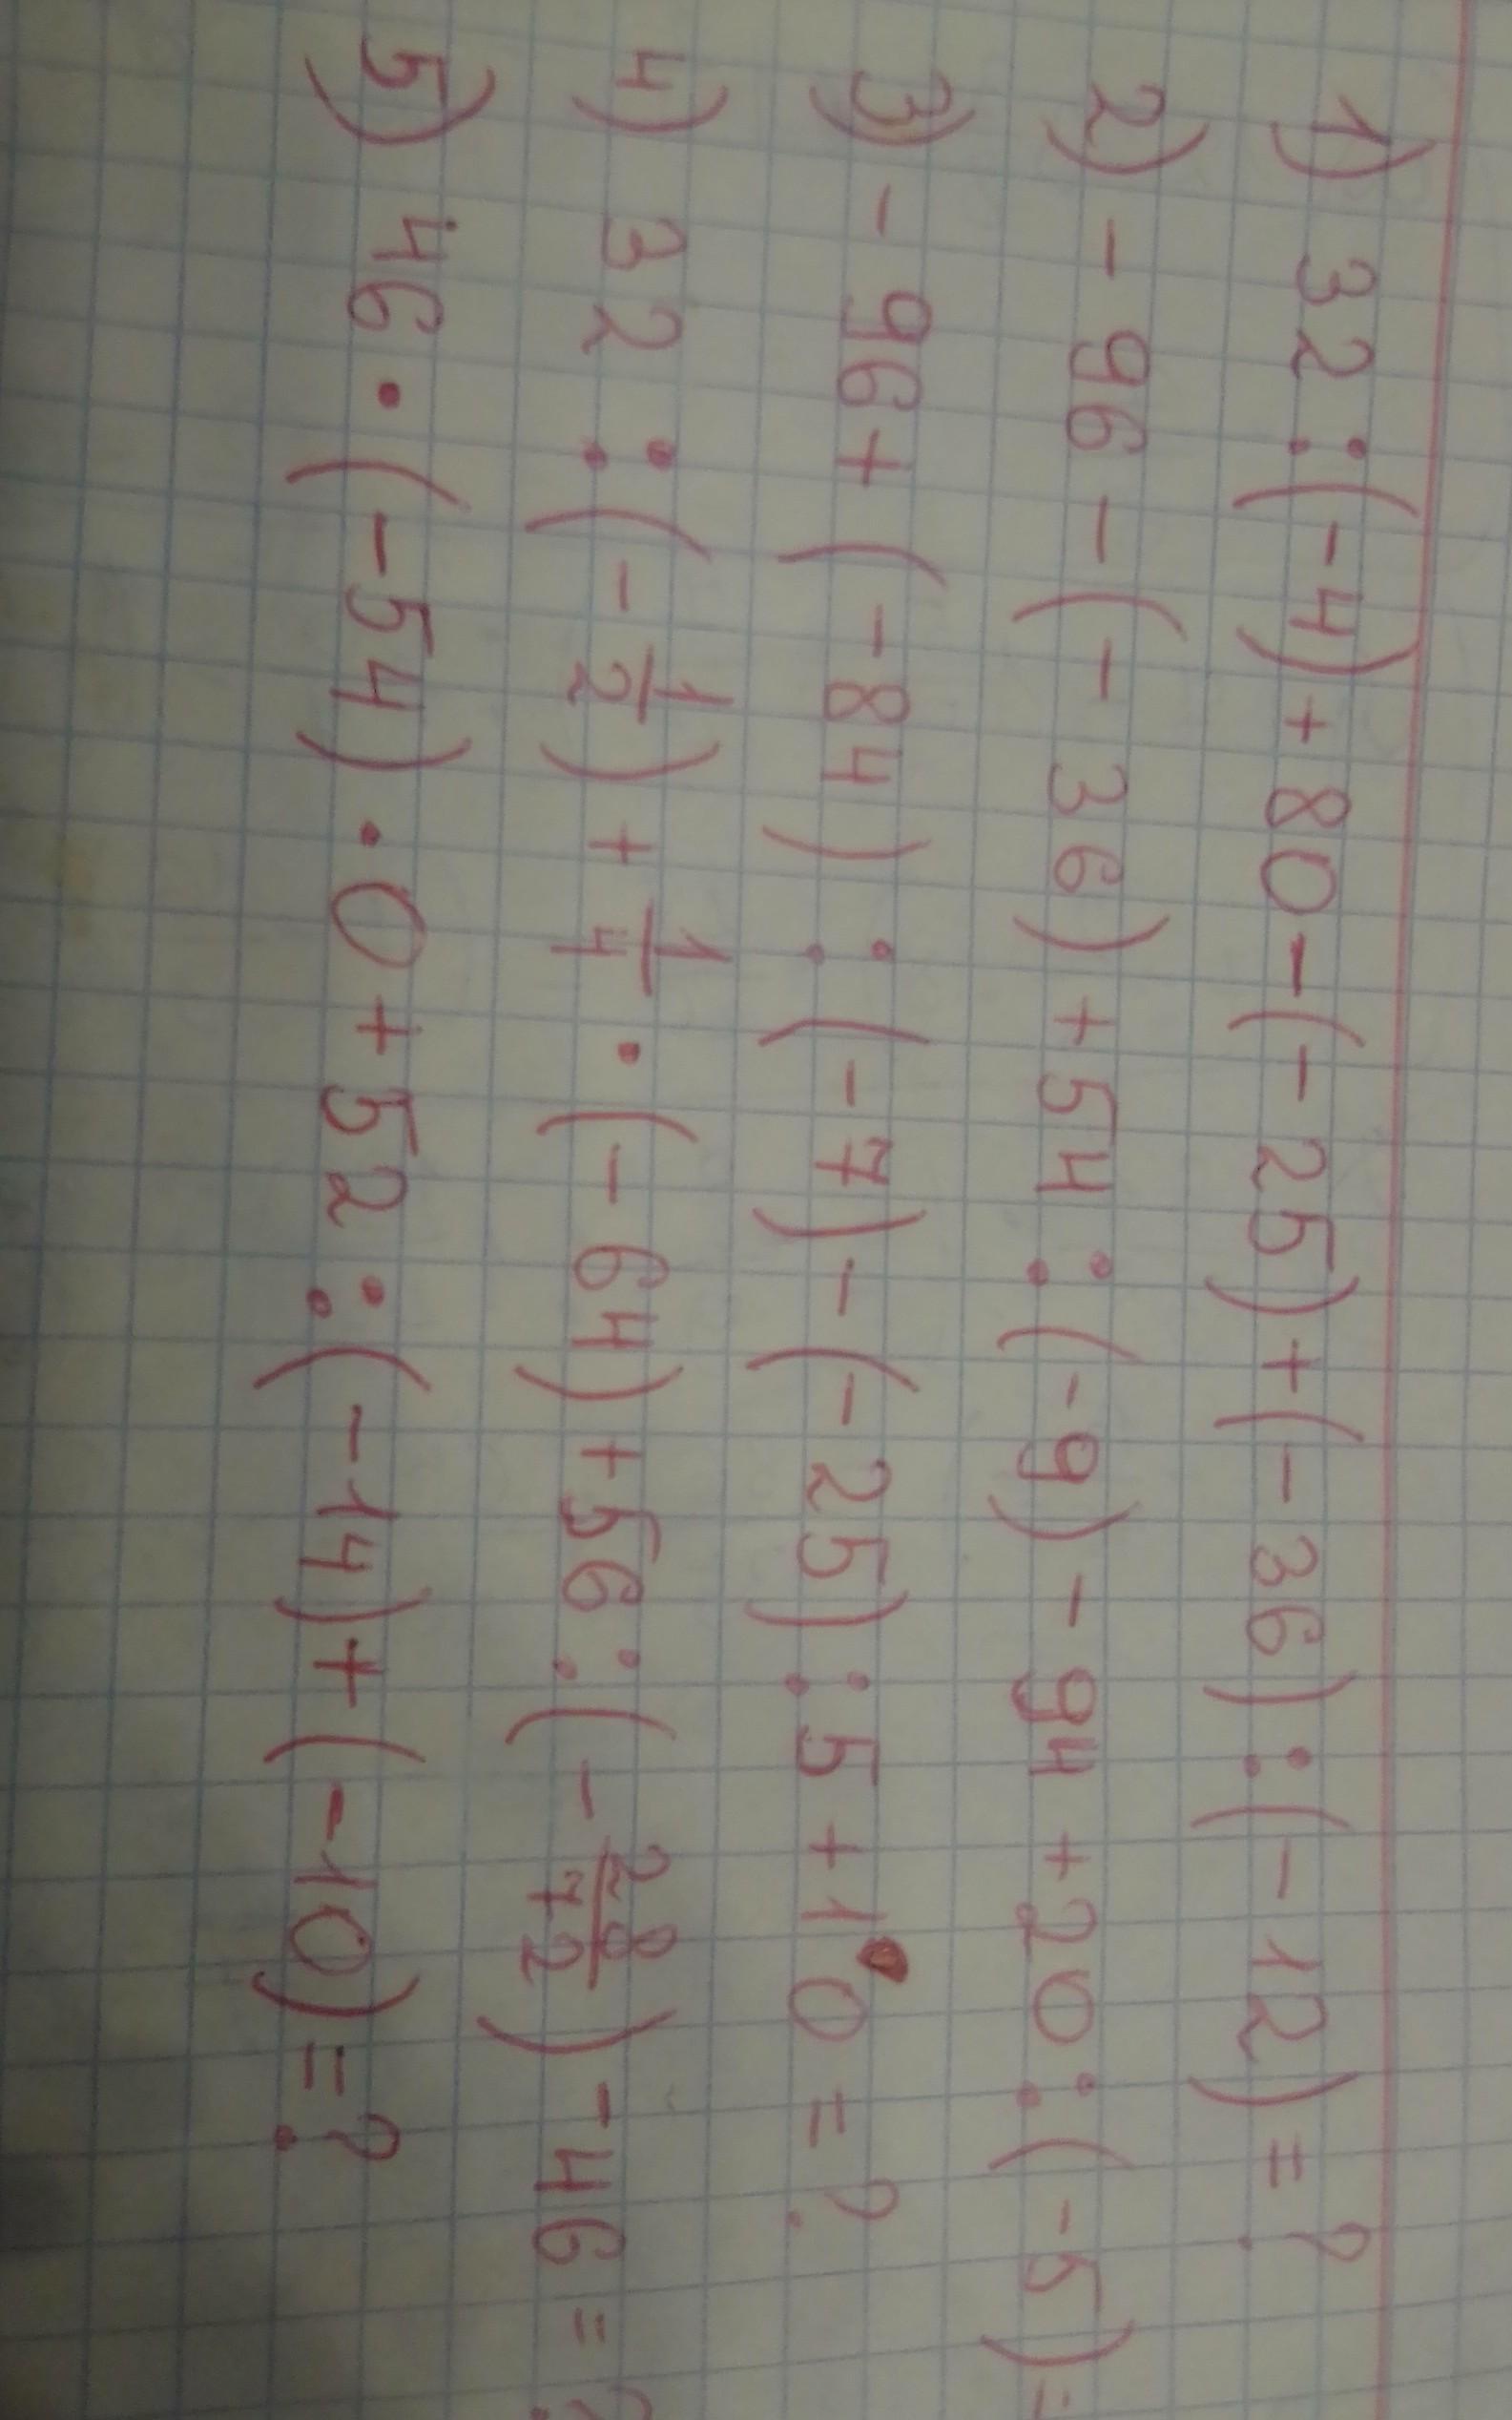 1) 32 : (-4) + 80 - (-25) + (-36) : (-12) = ?
2) - 96 - (- 36) + 54 : (-9) - 94 + 20 : (-5) =
3) - 96 + (-84) : (-7) - (-25) : 5 + 10 = ?
4) 32 : (- 1/2) + 1/4 · (- 64) + 56 : (- 28/72) - 46 = ?
5) 46 · (-54) · 0 + 52 : (-14) + (-10) = ?